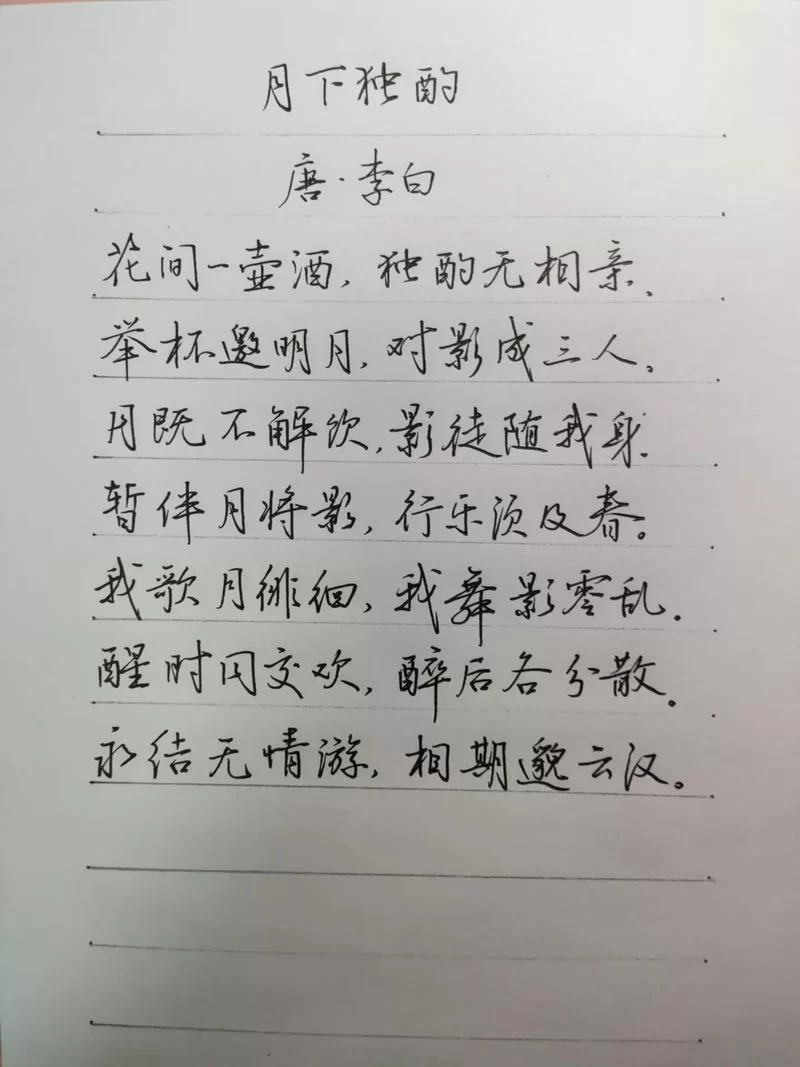 月下独酌
唐·李白
花间一壶酒，独酌无相亲。
举杯邀明月，对影成三人。
月既不解饮，影徒随我身。
暂伴月将影，行乐须及春。
我歌月徘徊，我舞影零乱。
醒时同交欢，醉后各分散。
永结无情游，相期邈云汉。